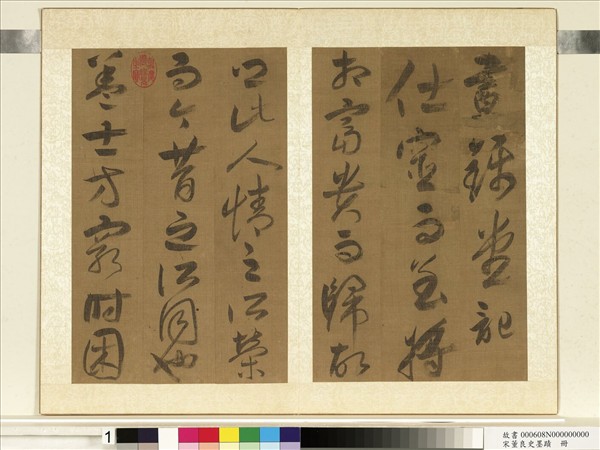 晝錦堂記
仕宦而至將
相富貴而歸故
鄉此人情之所榮
而今昔之所同也
蓋士方窮時困
1
故書 000608N000000000
宋董良史墨蹟 冊